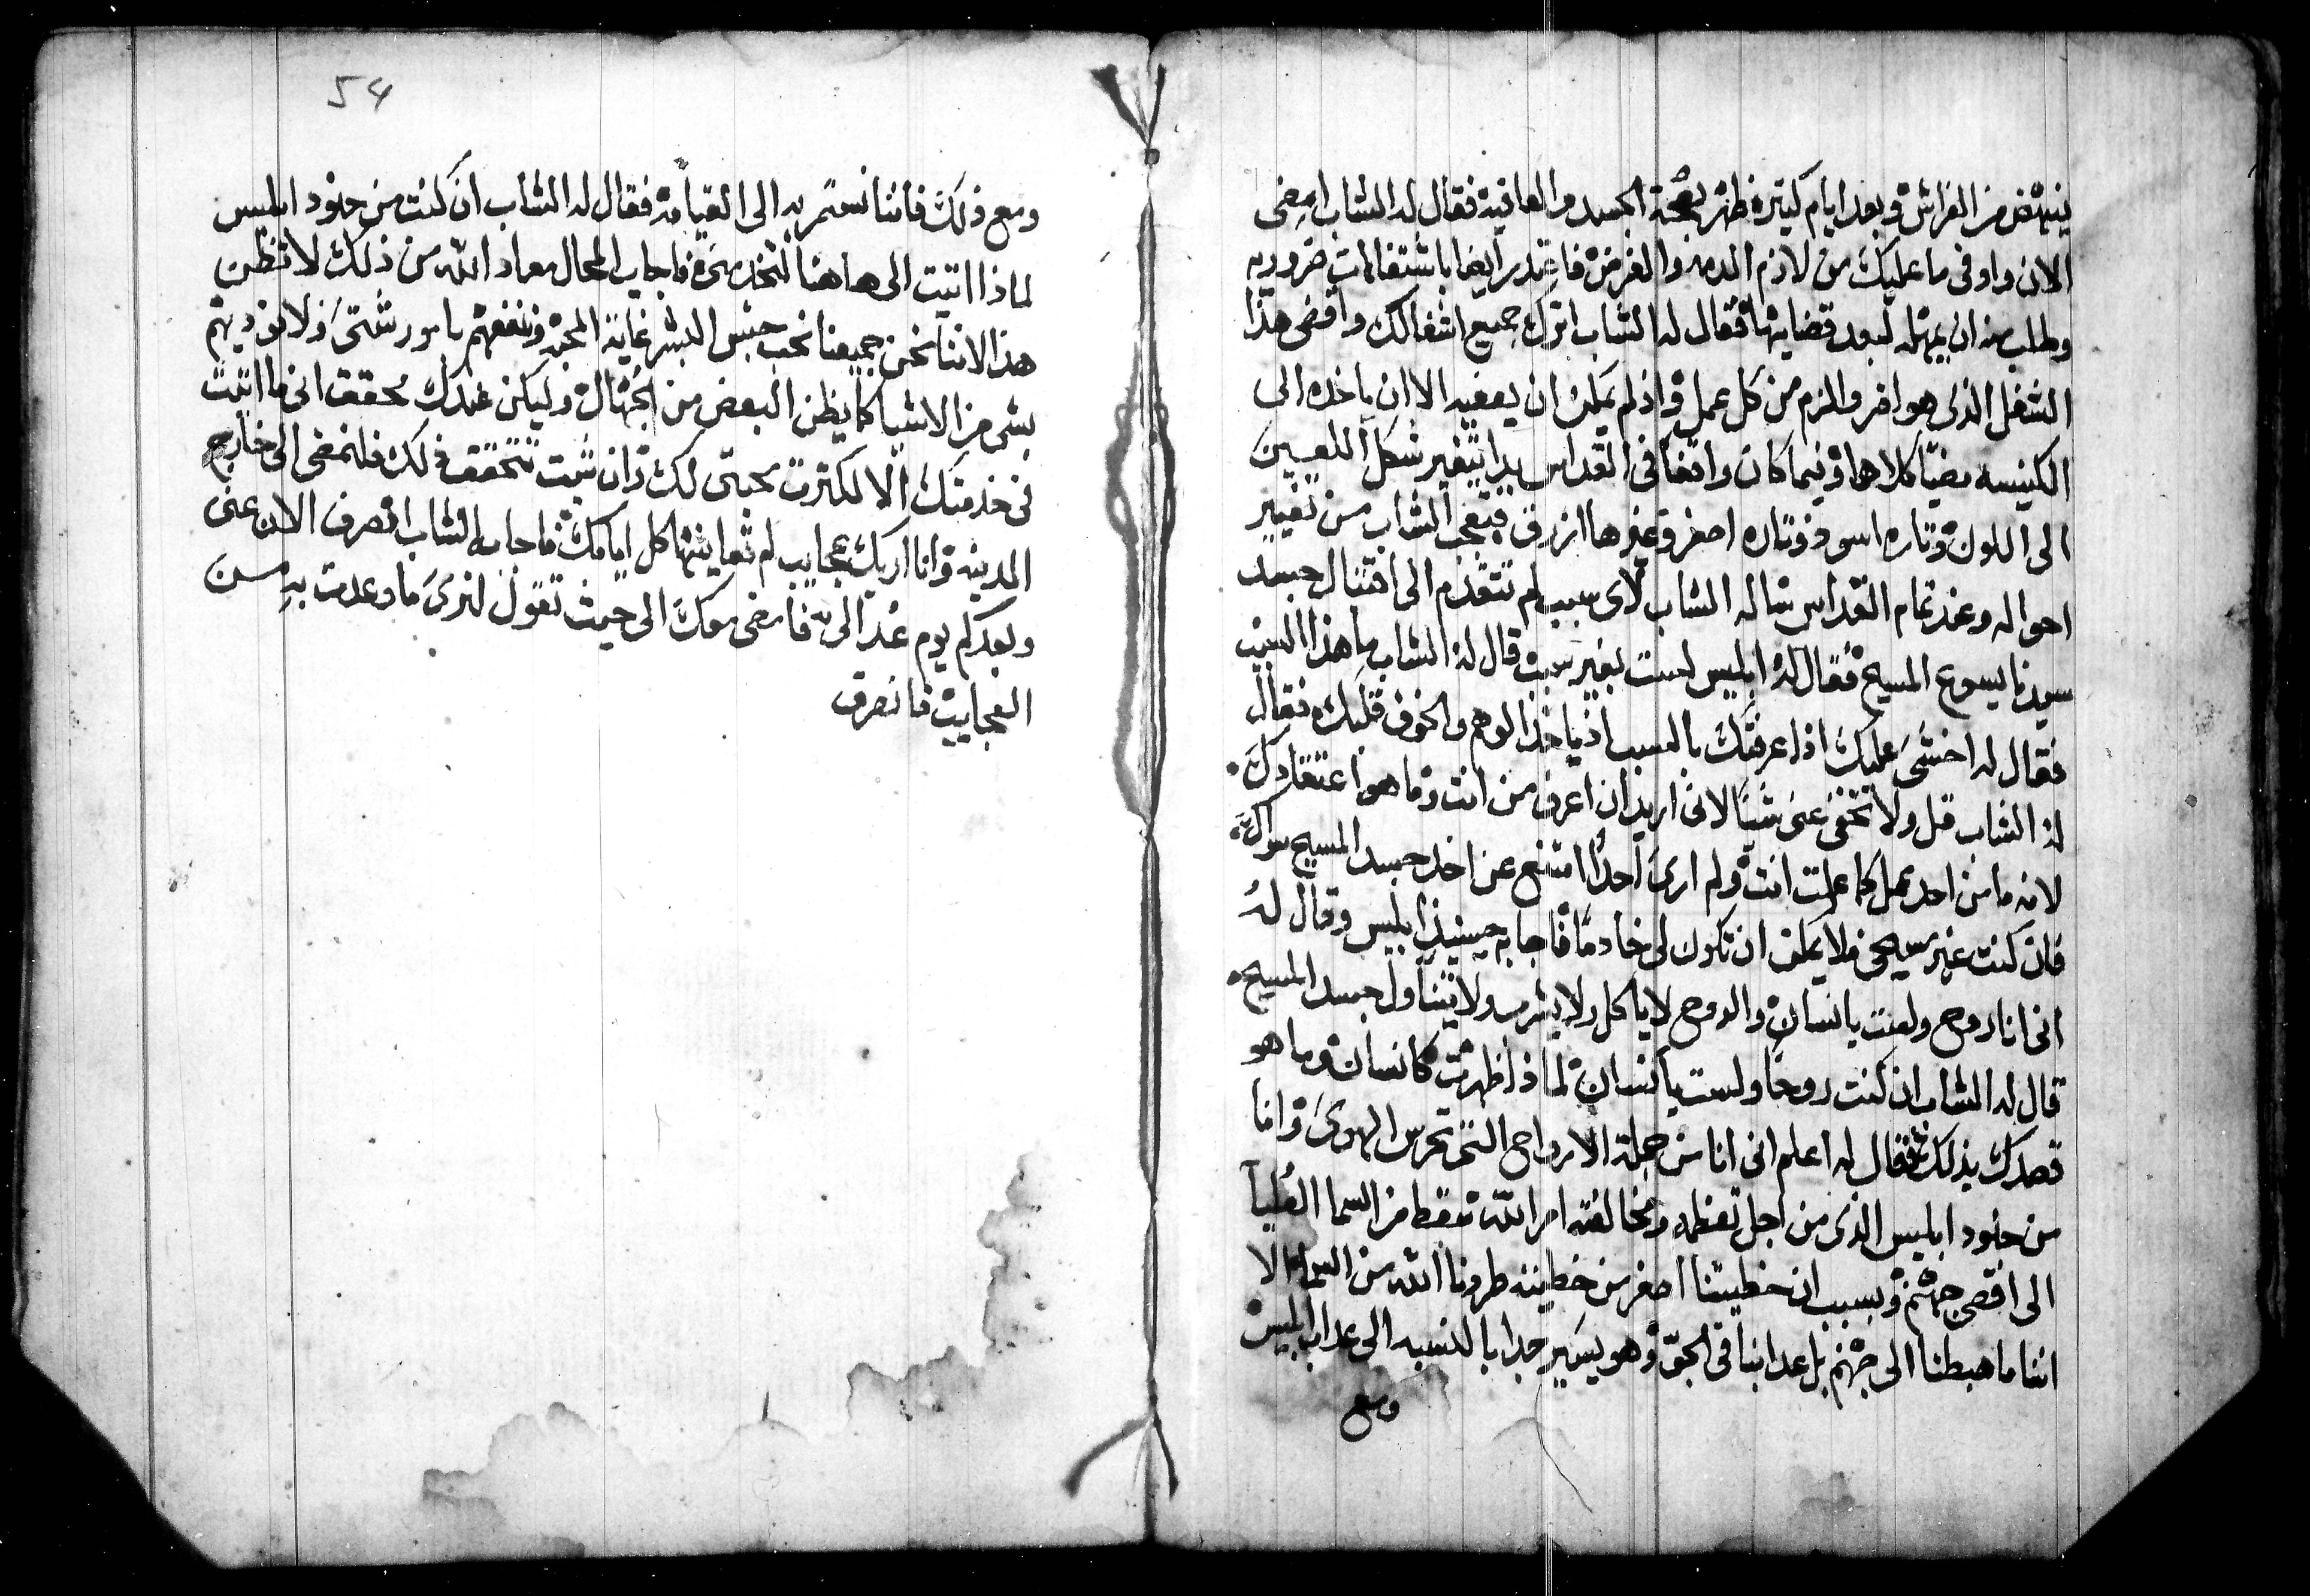 ينهض من الفراش وبعد ايام كتيره ظهر بصحة الجسد والعافيه فقال له الشاب امضى
الان واوفى ما عليك من لازم الدمه والفرض فاعتدر ايضا باشتغالات ضروريه
وطلب منه ان يمهله لبعد قضايها فقال له الشاب اترك جميع اشغالك واقضى هذا
الشغل الذى هو اخر والزم من كل عمل واذ لم يمكن ان يعفيه الا ان ياخذه الى
الكنيسه مضيا كلاهما وفيما كان واقفا فى القداس بدا يتغير شكل اللعين
الى اللون وتاره اسود وتاره اصفر وغيرها ازرق فتعجب الشاب من تغيير
احواله وعند تمام القداس ساله الشاب لاى سبب لم تتقدم الى اقتبال جسد
سيدنا يسوع المسيح فقال له ابليس لست بغير سبب قال له الشاب ما هذا السبب
فقال له اخشى عليك اذا عرفتك بالسبب اذ ياخذ الوهم والخوف قلبك فقال
له الشاب قل ولا تخفى عنى شيئا لانى اريد ان اعرف من انت وما هو اعتقادك
لانه ما من احد عمل كما عملت انت ولم ارى احدا امتنع عن اخد جسد المسيح سواك
فان كنت غير مسيحى فلا يمكن ان تكون لى خادما فاجابه حينيذ ابليس وقال له
انى انا روح ولست بانسان والروح لا ياكل ولا يشرب ولا يتناول جسد المسيح
قال له الشاب ان كنت روحا ولست بانسان لماذا ظهرت كانسان وما هو
قصدك بذلك فقال له اعلم انى انا من جملة الارواح التى تحرس الهوى وانا
من جنود ابليس الذى من اجل تعظمه ومخالفته امر الله سقط من السما العليا
الى اقصى جهنم وبسبب ان خطيتنا اصغر من خطيته طردنا الله من السما الا
اننا ما هبطنا الى جهنم بل عدابنا فى الجو وهو يسير جدا بالنسبه الى عداب ابليس
ومع
54
ومع ذلك فاننا نستمر به الى القيامه فقال له الشاب ان كنت من جنود ابليس
لماذا اتيت الى هاهنا لتخدمنى فاجاب المحال معاد الله من ذلك لا تظن
هذا لاننا نحن جميعنا نحب جنس البشر غاية المحبه وننفعهم بامور شتى ولا نوديهم
بشى من الاشيا كما يظن البعض من الجهال وليكن عندك محقق انى ما اتيت
فى خدمتك الا لكترت محبتى لك وان شيت تتحقق ذلك فلنمضى الى خارج
المدينه وانا اريك عجايب لم تعاينها كل ايامك فاجابه الشاب انصرف الان عنى
وبعدكم يوم عُد الى فامضى معك الى حيث تقول لنرى ما وعدت به من
العجايب فانصرف